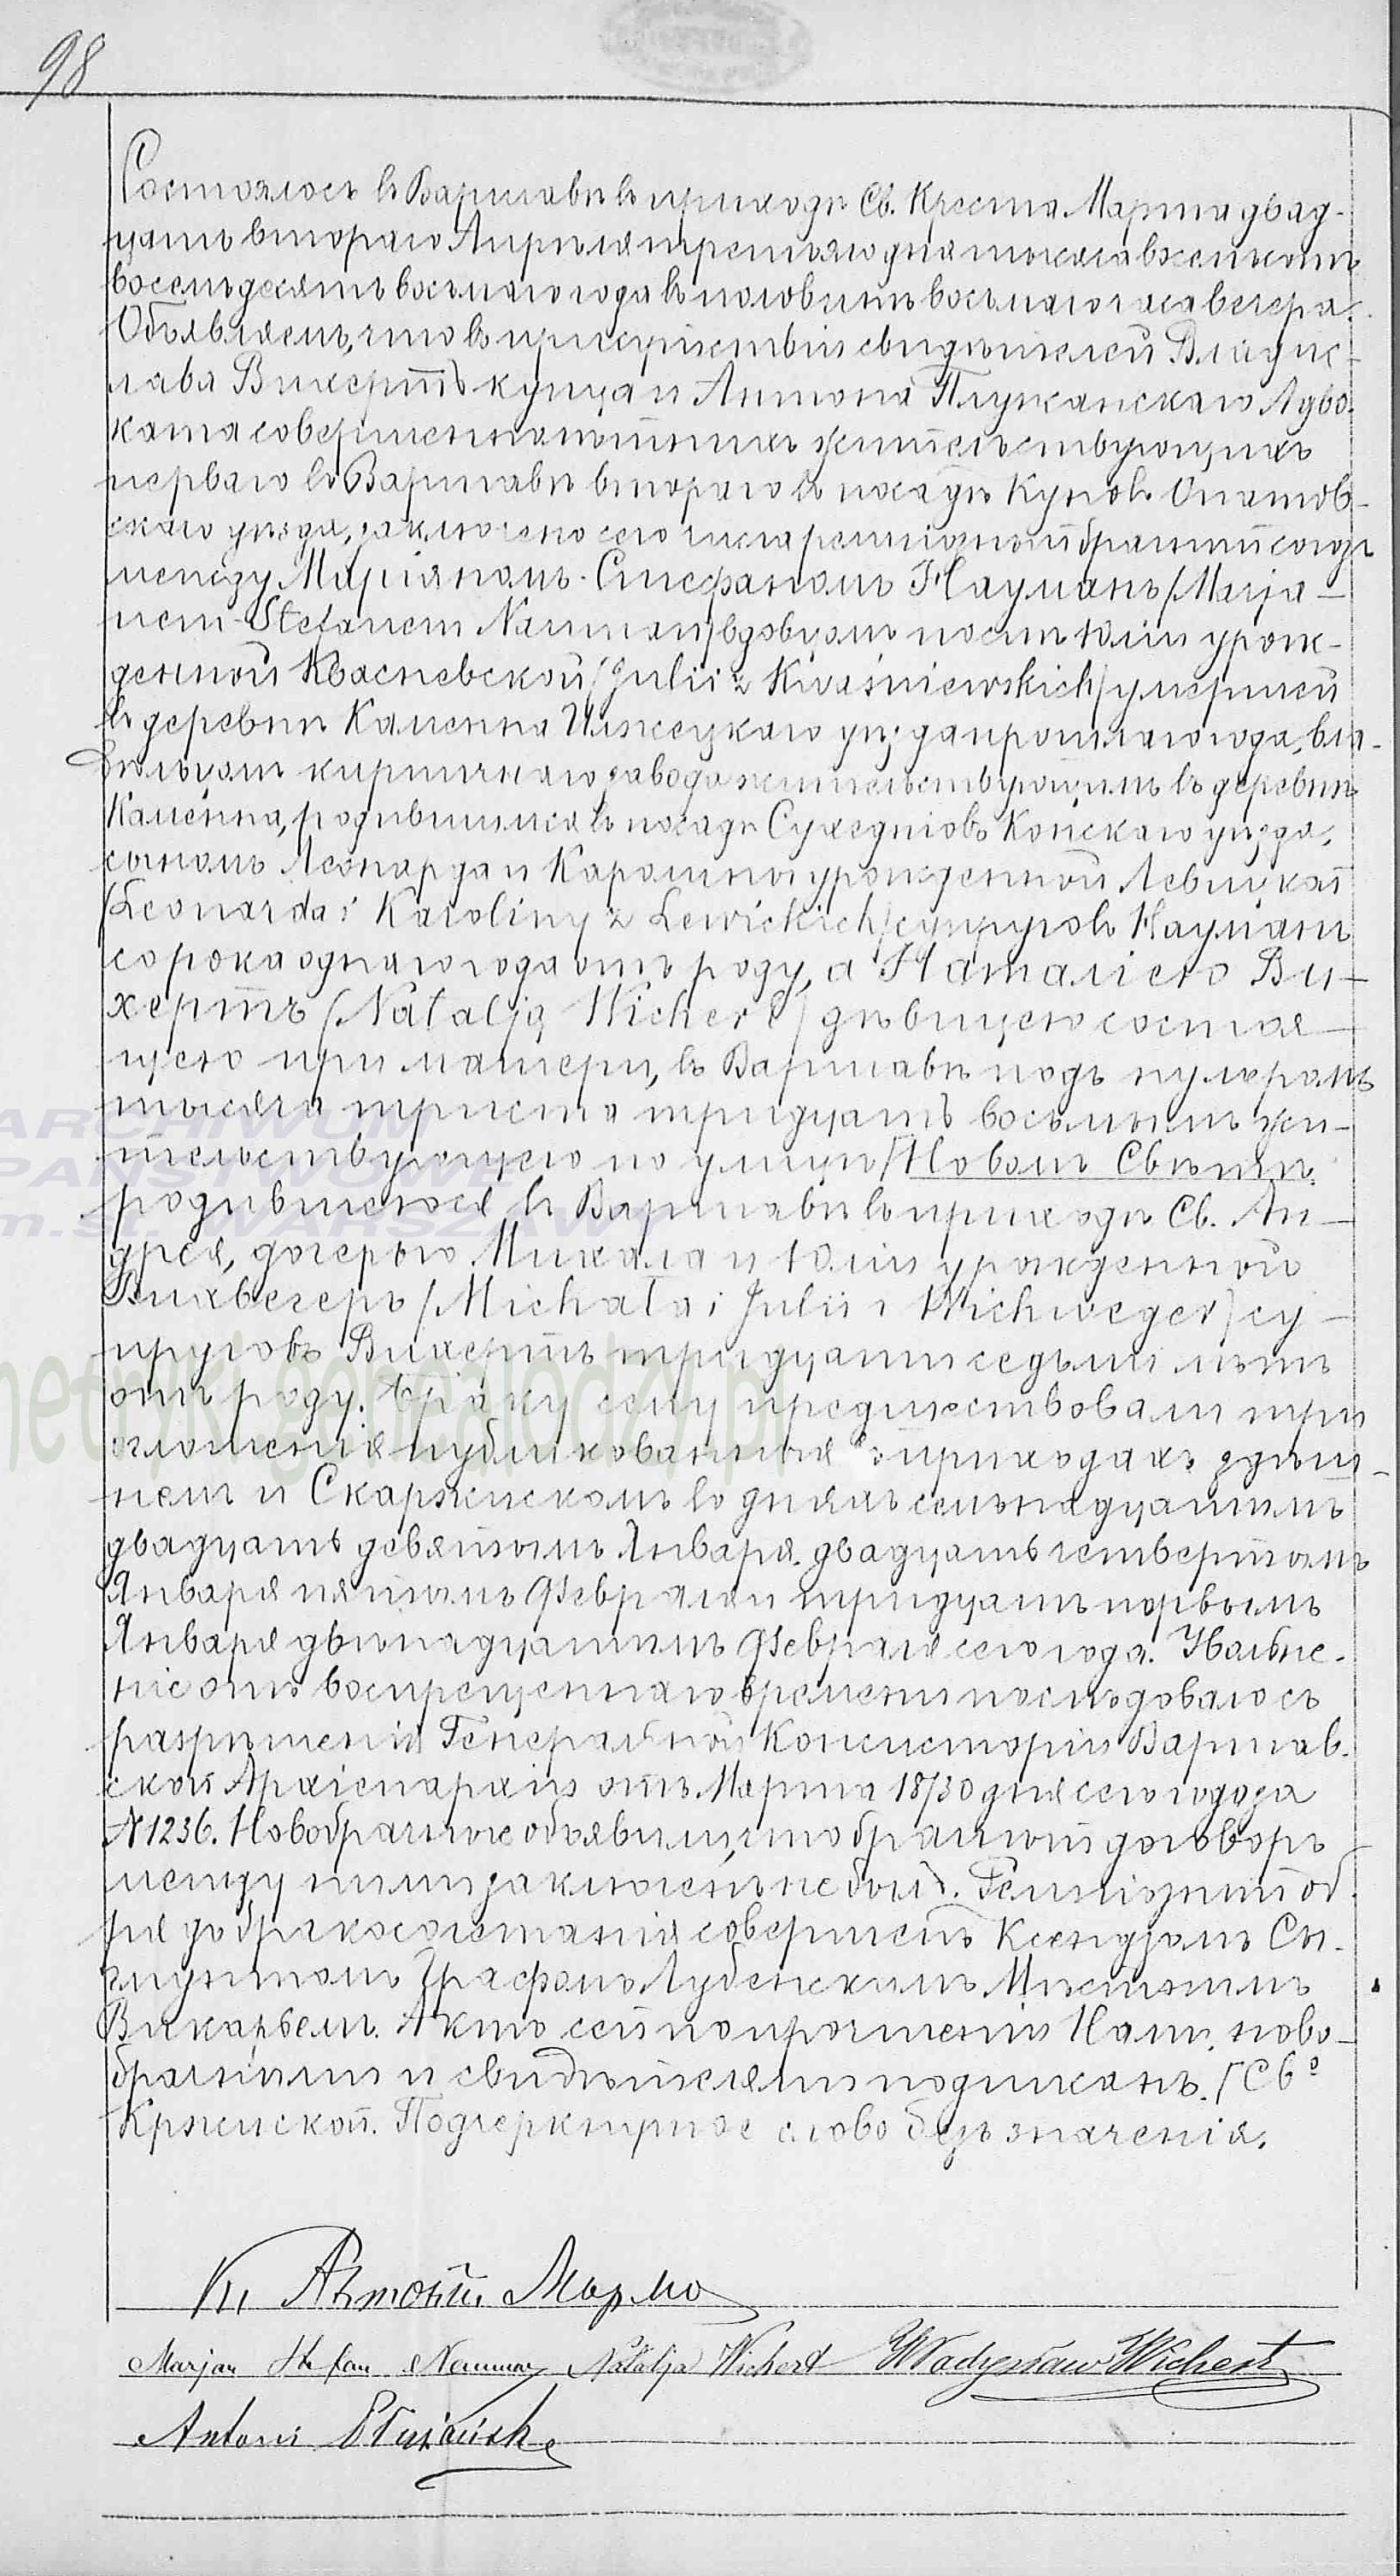 98
Состоялось въ Варшавѣ въ приходѣ Св. Креста Марта двад-
цать втораго Апрѣля третьяго дня тысяча восемьсотъ
восемьдесятъ восьмаго года въ половинѣ восьмаго часа вечера.
Объявляемъ, что въ присутствіи свидѣтелей Владис-
лава Вихертъ купца и Антона Плужанскаго Адво-
ката совершеннолѣтнихъ жительствующихъ
перваго въ Варшавѣ втораго въ посадѣ Куновъ Опатов-
скаго уѣзда, заключено сего числа религіозный брачный союзъ
между Маріаномъ-Стефаномъ Науманъ /Marja-
nem-Stefanem Nauman/ вдовцомъ послѣ Юліи урож-
денной Квасневской /Julii z Kwaśniewskich/ умершей
въ деревнѣ Каменна Илжецкаго уѣзда прошлаго года, вла-
дѣльцемъ кирпичнаго завода жительствующимъ въ деревнѣ
Каменна, родившимся въ посадѣ Сухедніовъ Конскаго уѣзда,
сыномъ Леонарда и Каролины урожденной Левицкой
/Leonarda i Karoliny z Lewickich/ супруговъ Науманъ
сорока одного года отъ роду, а Наталіею Ви-
хертъ /Natalją Wichert/ дѣвицею состоя-
щею при матери, въ Варшавѣ подъ нумеромъ
тысяча триста тридцать восьмымъ жи-
тельствующею по улицѣ /Новомъ Свѣтѣ
родившеюся въ Варшавѣ въ приходѣ Св. Ан-
дрея, дочерью Михала и Юліи урожденной
Вихвегеръ /Michała i Julii z Wichweger/ су-
пруговъ Вихертъ тридцати седьми лѣтъ
отъ роду. Браку сему предшествовали три
оглашенія публикованныя въ приходахъ здѣш-
немъ и Скаржискомъ во дняхъ семьнадцатомъ
двадцать девятомъ Января двадцать четвертомъ
Января пятомъ Февраля и тридцать первомъ
Января двѣнадцатомъ Февраля сего года. Увольне-
ніе отъ воспрещеннаго времени послѣдовалось
разрѣшенія Генеральной Консисторіи Варшав-
ской Архіепархіи отъ Марта 18/30 дня сего года за
N 1236. Новобрачные объявили, что брачный договоръ
между ними заключенъ не былъ. Религіозный об-
рядъ бракосочетанія совершенъ Ксендзомъ Си-
гизмунтомъ Графомъ Лубенскимъ Мѣстнымъ
Викаріемъ. Актъ сей по прочтеніи Нами, ново-
брачными и свидѣтелями подписанъ. / Св⁰
Кржиской. Подчеркнутое слово безъ значенія.
Кс. Антоній
Marjan Stefan Nauman Natalja Wichert Władysław Wichert
Antoni Płużański
ARCHIWUM
PAŃSTWOWE
m.st. WARSZAWY
metryki.genealodzy.pl